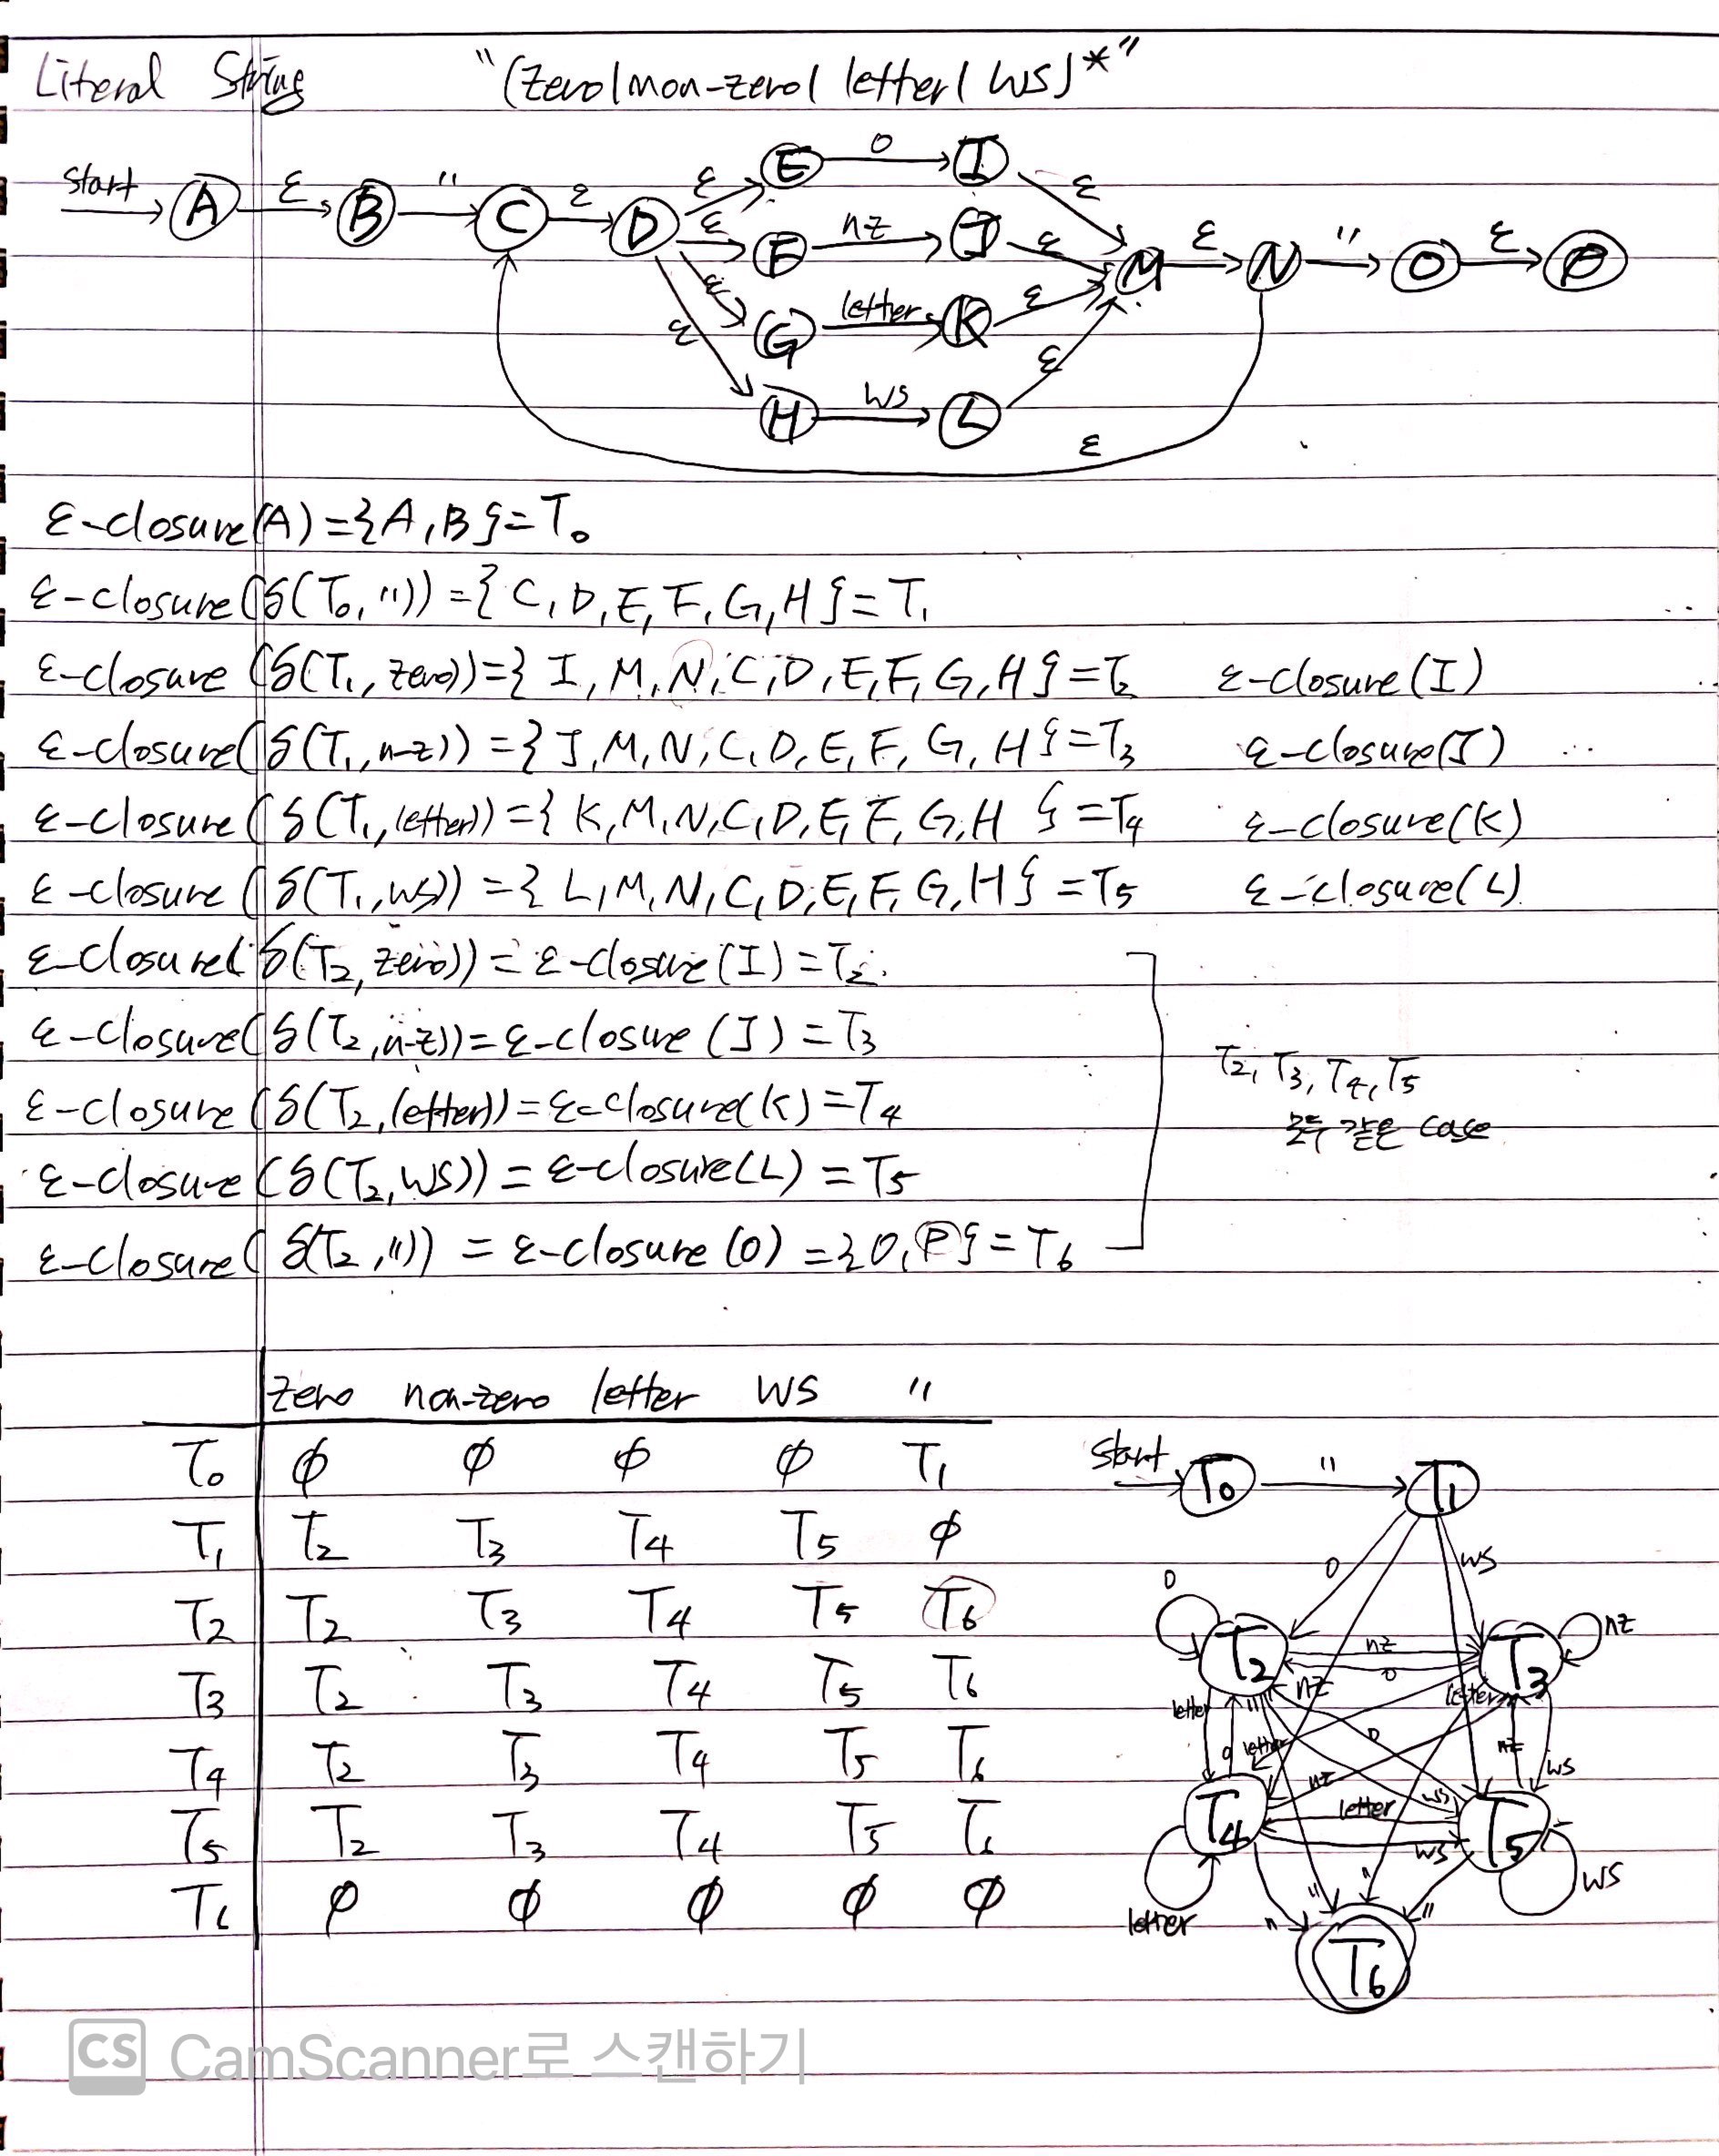 Literal String "(zero|non-zero| letter| WS)*"
start A ε B " C ε D ε E 0 I ε
ε F nz J ε M ε N " O ε P
ε G letter K ε
ε H WS L ε
ε
ε-closure(A)={A,B}=T₀
ε-closure(δ(T₀,"))={C,D,E,F,G,H}=T₁
ε-closure(δ(T₁,zero))={I,M,N,C,D,E,F,G,H}=T₂ ε-closure(I)
ε-closure(δ(T₁,n-z))={J,M,N,C,D,E,F,G,H}=T₃ ε-closure(J)
ε-closure(δ(T₁,letter))={K,M,N,C,D,E,F,G,H}=T₄ ε-closure(K)
ε-closure(δ(T₁,WS))={L,M,N,C,D,E,F,G,H}=T₅ ε-closure(L)
ε-closure(δ(T₂,zero))=ε-closure(I)=T₂
ε-closure(δ(T₂,n-z))=ε-closure(J)=T₃
T₂,T₃,T₄,T₅
ε-closure(δ(T₂,letter))=ε-closure(K)=T₄
모두 같은 case
ε-closure(δ(T₂,WS))=ε-closure(L)=T₅
ε-closure(δ(T₂,"))=ε-closure(O)={O,P}=T₆
zero non-zero letter WS "
T₀ ϕ ϕ ϕ ϕ T₁
T₁ T₂ T₃ T₄ T₅ ϕ
T₂ T₂ T₃ T₄ T₅ T₆
T₃ T₂ T₃ T₄ T₅ T₆
T₄ T₂ T₃ T₄ T₅ T₆
T₅ T₂ T₃ T₄ T₅ T₆
T₆ ϕ ϕ ϕ ϕ ϕ
start T₀ " T₁
0 WS
0 T₂ nz 0 T₃ nz
letter " nz letter
0 letter 0 nz WS
nz
T₄ letter WS T₅
WS WS
letter " " " "
T₆
CS CamScanner로 스캔하기